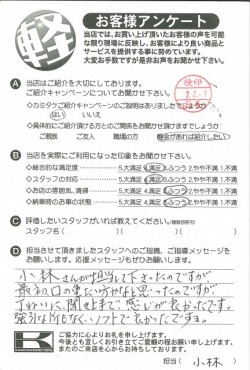 軽
お客様アンケート
当店では、お買い上げ頂いたお客様の声を可能
な限り現場に反映し、お客様により良い商品と
サービスを提供する事に努めています。
大変お手数ですが是非お声をお聞かせ下さい。
A 当店はご紹介を大切にしております。
ご紹介キャンペーンについてお聞かせ下さい。
検印
22.
◇カミタケご紹介キャンペーンのご説明はありましたでしょうか
はい いいえ
◇具体的にご紹介頂ける方とのご関係をお聞かせ頂けますでしょうか
ご親族 ご友人 職場の方 機会があれば紹介したい
B 当店を実際にご利用になった印象をお聞かせ下さい。
◇総合的な満足度 5.大満足 4.満足 3.ふつう 2.やや不満 1.不満
◇スタッフの対応 5.大満足 4.満足 3.ふつう 2.やや不満 1.不満
◇お店の雰囲気、清掃 5.大満足 4.満足 3.ふつう 2.やや不満 1.不満
◇納車時のお車の状態 5.大満足 4.満足 3.ふつう 2.やや不満 1.不満
C 評価したいスタッフがいれば教えてください。(複数回答可)
スタッフ名( )( )
D 担当させて頂きましたスタッフへのご指摘、ご指導メッセージをお
願いします。応援メッセージもぜひお願いします。
小林さんが担当して下さったのですが
最初口の重たい方かなと思ったのですが
丁ねいに、聞き上手で感じが良かったです。
強引な所もなく、ソフトで良かったですョ。
K
ご協力に心よりお礼を申し上げます。
今後とも宜しくお引き立てご愛顧の程お願い申し上げます。
またのご来店を心からお待ちしております。
担当( 小林 )